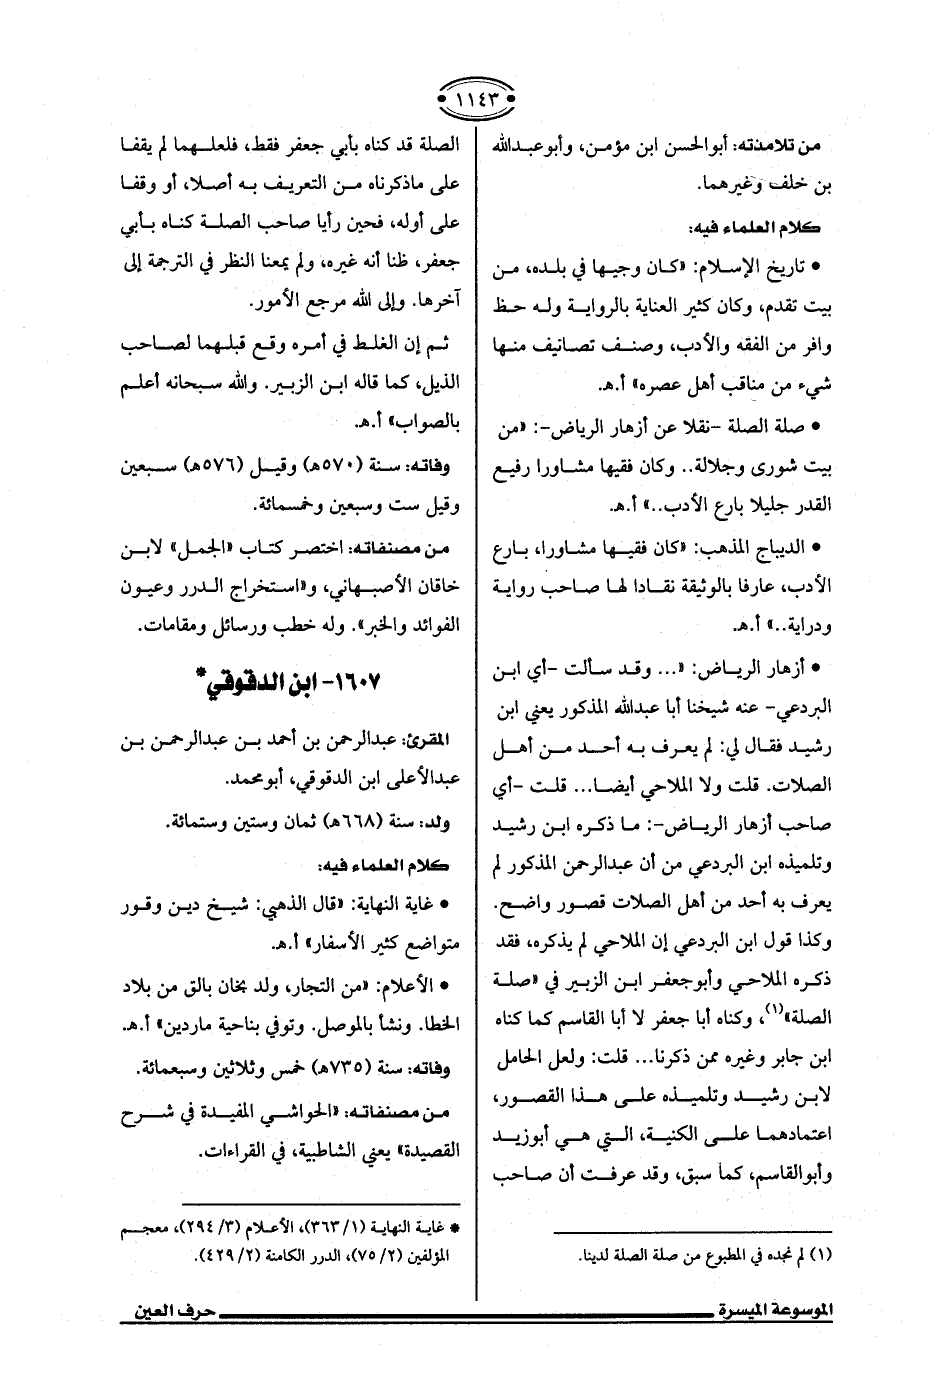 ١١٤٣
من تلامذته: أبوالحسن ابن مؤمن، وأبوعبدالله
بن خلف وغيرهما.
كلام العلماء فيه:
• تاريخ الإسلام: «كان وجيها في بلده، من
بيت تقدم، وكان كثير العناية بالرواية وله حظ
وافر من الفقه والأدب، وصنف تصانيف منها
شيء من مناقب أهل عصره» أ.هـ.
• صلة الصلة -نقلا عن أزهار الرياض-: «من
بيت شورى وجلالة.. وكان فقيها مشاورا رفيع
القدر جليلا بارع الأدب..» أ.هـ.
• الديباج المذهب: «كان فقيها مشاورا، بارع
الأدب، عارفا بالوثيقة نقادا لها صاحب رواية
ودراية..» أ.هـ.
• أزهار الرياض: «... وقد سألت -أي ابن
البردعي- عنه شيخنا أبا عبدالله المذكور يعني ابن
رشيد فقال لي: لم يعرف به أحد من أهل
الصلات. قلت ولا الملاحي أيضا... قلت -أي
صاحب أزهار الرياض-: ما ذكره ابن رشيد
وتلميذه ابن البردعي من أن عبدالرحمن المذكور لم
يعرف به أحد من أهل الصلات قصور واضح.
وكذا قول ابن البردعي إن الملاحي لم يذكره، فقد
ذكره الملاحي وأبوجعفر ابن الزبير في «صلة
الصلة»(١)، وكناه أبا جعفر لا أبا القاسم كما كناه
ابن جابر وغيره ممن ذكرنا... قلت: ولعل الحامل
لابن رشيد وتلميذه على هذا القصور،
اعتمادهما على الكنية، التي هي أبوزيد
وأبوالقاسم، كما سبق، وقد عرفت أن صاحب
(١) لم نجده في المطبوع من صلة الصلة لدينا.
الصلة قد كناه بأبي جعفر فقط، فلعلهما لم يقفا
على ماذكرناه من التعريف به أصلا، أو وقفا
على أوله، فحين رأيا صاحب الصلة كناه بأبي
جعفر، ظنا أنه غيره، ولم يمعنا النظر في الترجمة إلى
آخرها. وإلى الله مرجع الأمور.
ثم إن الغلط في أمره وقع قبلهما لصاحب
الذيل، كما قاله ابن الزبير. والله سبحانه أعلم
بالصواب» أ.هـ.
وفاته: سنة (٥٧٠هـ) وقيل (٥٧٦هـ) سبعين
وقيل ست وسبعين وخمسمائة.
من مصنفاته: اختصر كتاب «الجمل» لابن
خاقان الأصبهاني، و«استخراج الدرر وعيون
الفوائد والخبر». وله خطب ورسائل ومقامات.
١٦٠٧- ابن الدقوقي*
المقرئ: عبدالرحمن بن أحمد بن عبدالرحمن بن
عبدالأعلى ابن الدقوقي، أبومحمد.
ولد: سنة (٦٦٨هـ) ثمان وستين وستمائة.
كلام العلماء فيه:
• غاية النهاية: «قال الذهبي: شيخ دين وقور
متواضع كثير الأسفار» أ.هـ.
• الأعلام: «من التجار، ولد بخان بالق من بلاد
الخطا. ونشأ بالموصل. وتوفي بناحية ماردين» أ.هـ.
وفاته: سنة (٧٣٥هـ) خمس وثلاثين وسبعمائة.
من مصنفاته: «الحواشي المفيدة في شرح
القصيدة» يعني الشاطبية، في القراءات.
* غاية النهاية (١/ ٣٦٣)، الأعلام (٣/ ٢٩٤)، معجم
المؤلفين (٢/ ٧٥)، الدرر الكامنة (٢/ ٤٢٩).
الموسوعة الميسرة
حرف العين